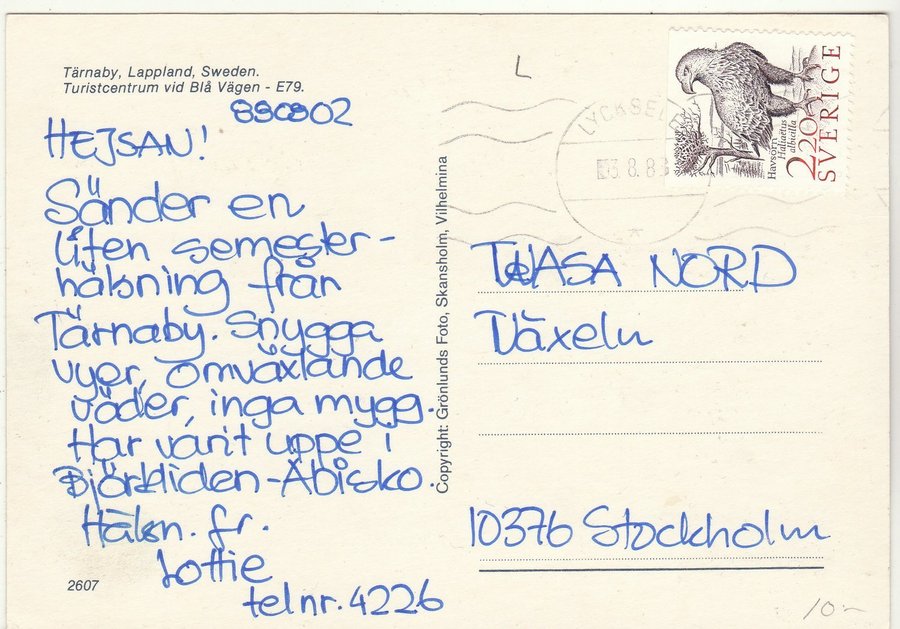 Tärnaby, Lappland, Sweden.
Turistcentrum vid Blå Vägen - E79.
890802
HEJSAN!
Sänder en
liten semester-
hälsning från
Tärnaby. Snygga
vyer, omväxlande
väder, inga mygg.
Har varit uppe i
Björkliden-Abisko.
Hälsn. fr.
Lottie
telnr. 4226
2607
Copyright: Grönlunds Foto, Skansholm, Vilhelmina
L
LYCKSEL
3.8.8
Havsörn
Haliaeetus
albicilla
2.20
SVERIGE
WASA NORD
Växeln
10376 Stockholm
10:-